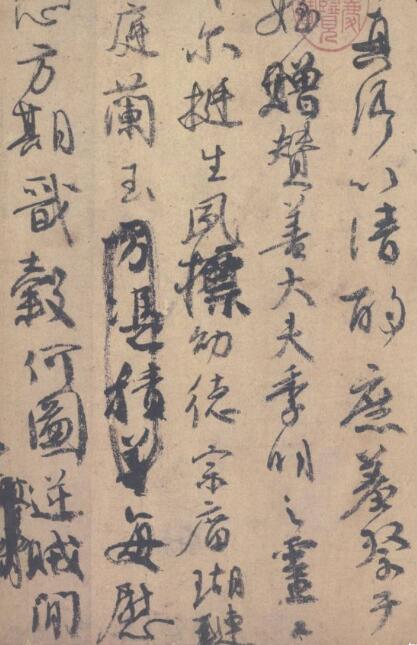 真卿以清酌庶羞祭于
姪贈贊善大夫季明之靈曰
尔挺生夙標幼德宗廟瑚璉
庭蘭玉方憑積善每慰
心方期戩穀何圖逆賊閒